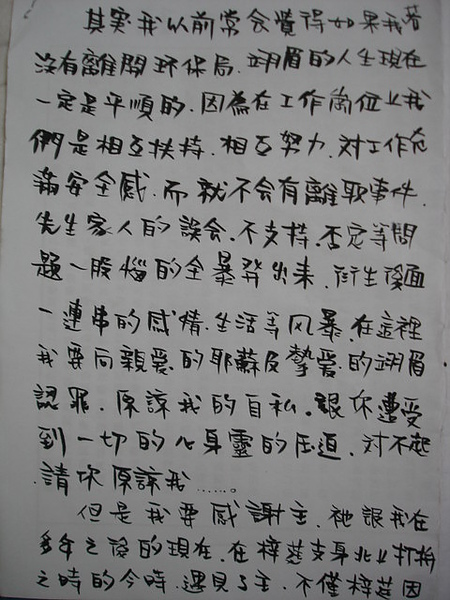 其实我以前常会覺得如果我若
没有離開环保局.翊眉的人生現在
一定是平順的.因為在工作崗位上我
們是相互扶持.相互努力.对工作充
滿安全感.而就不会有離职事件.
先生家人的誤会.不支持.否定等問
題一股惱的全暴發出来.衍生後面
一連串的感情.生活等风暴.在這裡
我要向親爱的耶穌及摯爱的翊眉
認罪.原諒我的自私.讓你遭受
到一切的心身靈的压迫.对不起
.請你原諒我......。
但是我要感謝主.祂讓我在
多年之後的現在.在梓莛支身北上打拚
之時的今時.遇見了主.不僅梓莛因